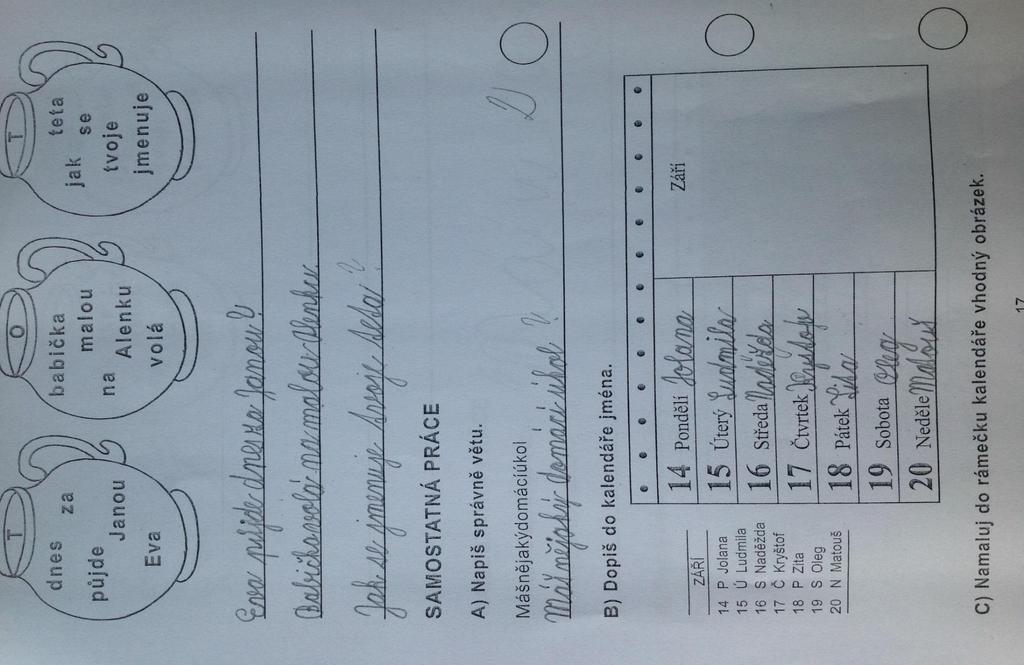 T
dnes za
půjde
Janou
Eva
O
babička
malou
na Alenku
volá
T
jak teta
se
tvoje
jmenuje
Eva půjde dnes za Janou?
Babička volá na malou Alenku
Jak se jmenuje tvoje teta?
SAMOSTATNÁ PRÁCE
A) Napiš správně větu.
Mášnějakýdomácíúkol
Máš nějaký domácí úkol?
B) Dopiš do kalendáře jména.
ZÁŘÍ
14 P Jolana
15 Ú Ludmila
16 S Naděžda
17 Č Kryštof
18 P Zita
19 S Oleg
20 N Matouš
Září
14 Pondělí Jolana
15 Úterý Ludmila
16 Středa Naděžda
17 Čtvrtek Kryštof
18 Pátek Zita
19 Sobota Oleg
20 Neděle Matouš
C) Namaluj do rámečku kalendáře vhodný obrázek.
17